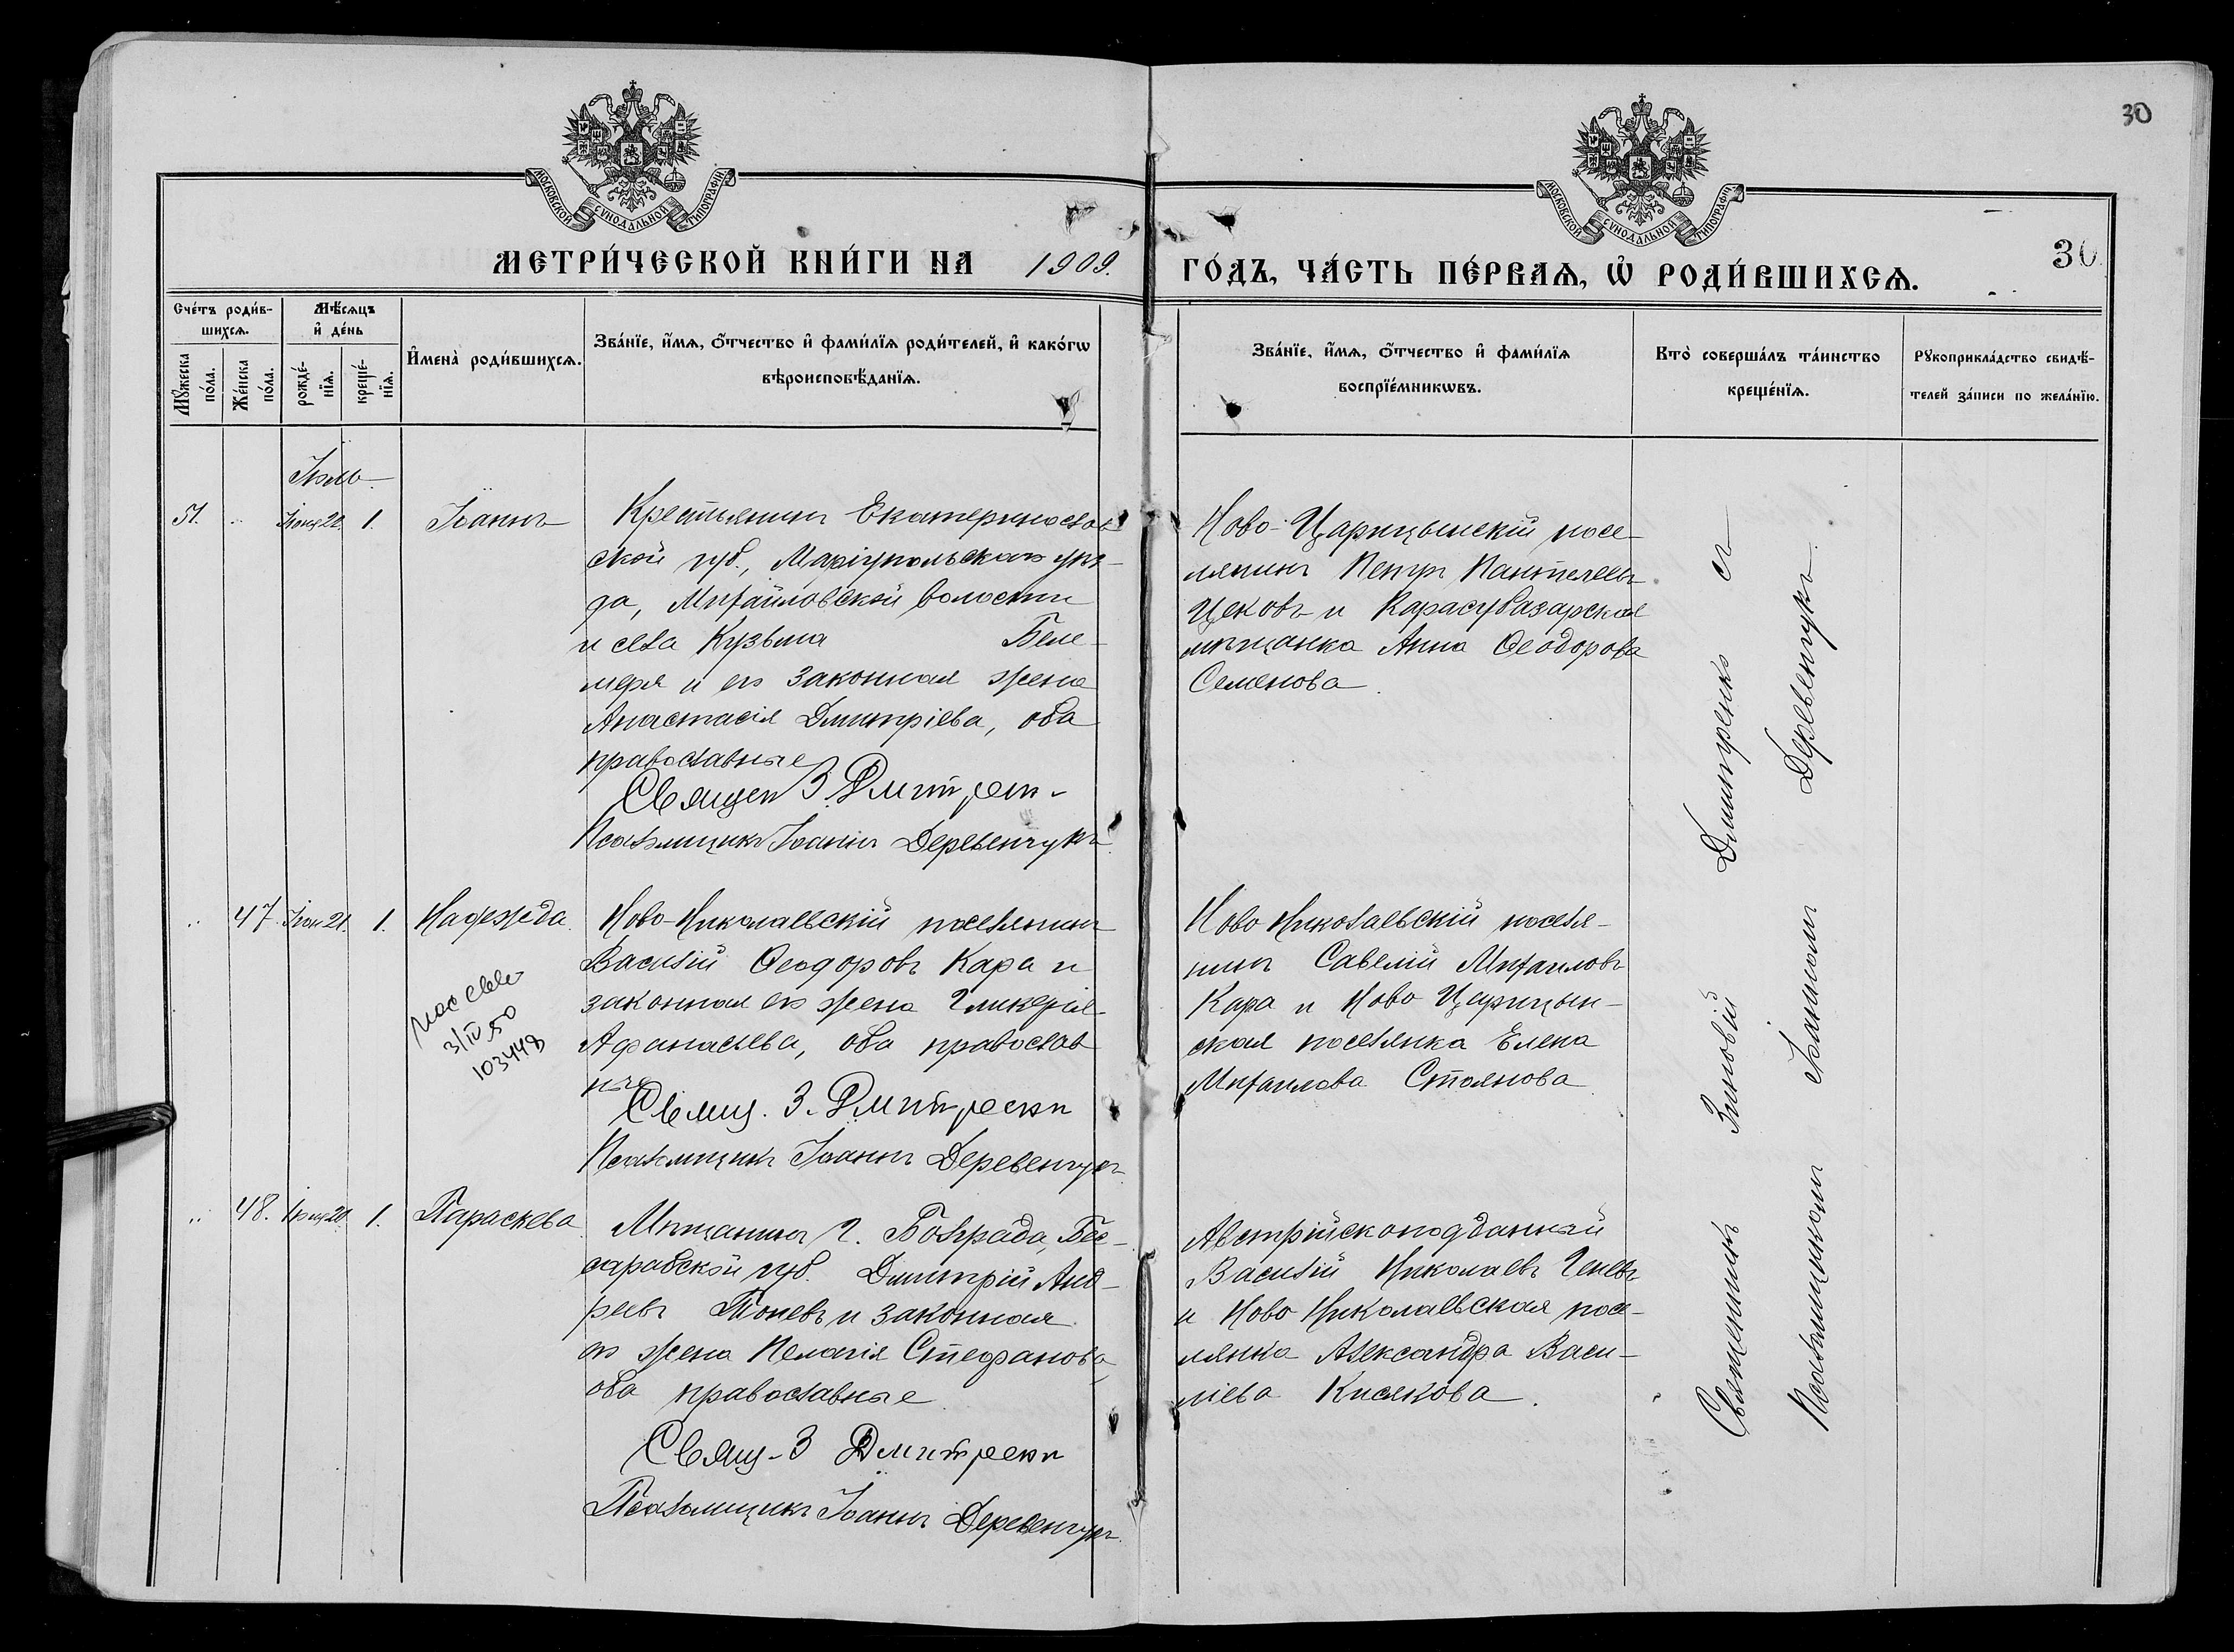 30
МОСКОВСКОЙ СѴНОДАЛЬНОЙ ТИПОГРАФІИ
МОСКОВСКОЙ СѴНОДАЛЬНОЙ ТИПОГРАФІИ
МЕТРИ́ЧЕСКОЙ КНИ́ГИ НА 1909.
ГО́ДЪ, ЧА́СТЬ ПЕ́РВАѦ, Ѡ҆ РОДИ́ВШИХСѦ.
30
Сче́тъ роди́в-
шихсѧ.
Мꙋжеска
по́ла.
Же́нска
по́ла.
Мѣ́сѧцъ
и҆ де́нь
рожде́-
нїѧ.
креще́-
нїѧ.
И҆мена̀ роди́вшихсѧ.
Зва́нїе, и҆́мѧ, ѻ҆́тчество и҆ фами́лїѧ роди́телей, и҆ како́гѡ
вѣроисповѣ́данїѧ.
Зва́нїе, и҆́мѧ, ѻ҆́тчество и҆ фами́лїѧ
воспрїе́мникѡвъ.
Кто̀ соверша́лъ та́инство
креще́нїѧ.
Рꙋкоприкла́дство свидѣ́-
телей за́писи по жела́нїю.
Іюль
51. " Іюня 20. 1. Іоаннъ
Крестьянинъ Екатеринослав
ской губ., Маріупольскаго уѣз-
да, Михайловской волости
и села Кузьма Беле-
меря и его законная жена
Анастасія Димитріева, оба
православные
Священ З. Дмитрен
Псаломщикъ Іоаннъ Деревенчукъ
Ново-Царицынскій посе-
лянинъ Петръ Пантелеевъ
Цековъ и Карасубазарская
мѣщанка Анна Ѳеодорова
Семенова.
" 47. Іюн 21. 1. Надежда.
Моссвев
3/IV 50
103448
Ново-Николаевскій поселянинъ
Василій Ѳеодоровъ Кара и
законная его жена Гликерія
Афанасьева, оба православ
ные
Свящ. З. Дмитренко
Псаломщикъ Іоаннъ Деревенчукъ
Ново Николаевскій поселя-
нинъ Савелій Михаиловъ
Кара и Ново Царицын-
ская поселянка Елена
Михаилова Стоянова
" 48. Іюня 20. 1. Параскева
Мѣщанинъ г. Болграда, Бес-
сарабской губ. Димитрій Анд-
реевъ Тоневъ и законная
его жена Пелагія Стефанова,
оба православные.
Свящ. З Дмитренко
Псаломщикъ Іоаннъ Деревенчукъ.
Австрійскоподданный
Василій Николаевъ Геневъ
и Ново Николаевская посе-
лянка Александра Васи-
ліева Кисякова.
Священникъ Зиновій Димитренко съ
Псаломщикомъ Іоанномъ Деревенчукъ.